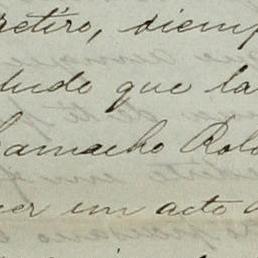 retiro, siemp
dudo que la
Camacho Rol
er un acto d